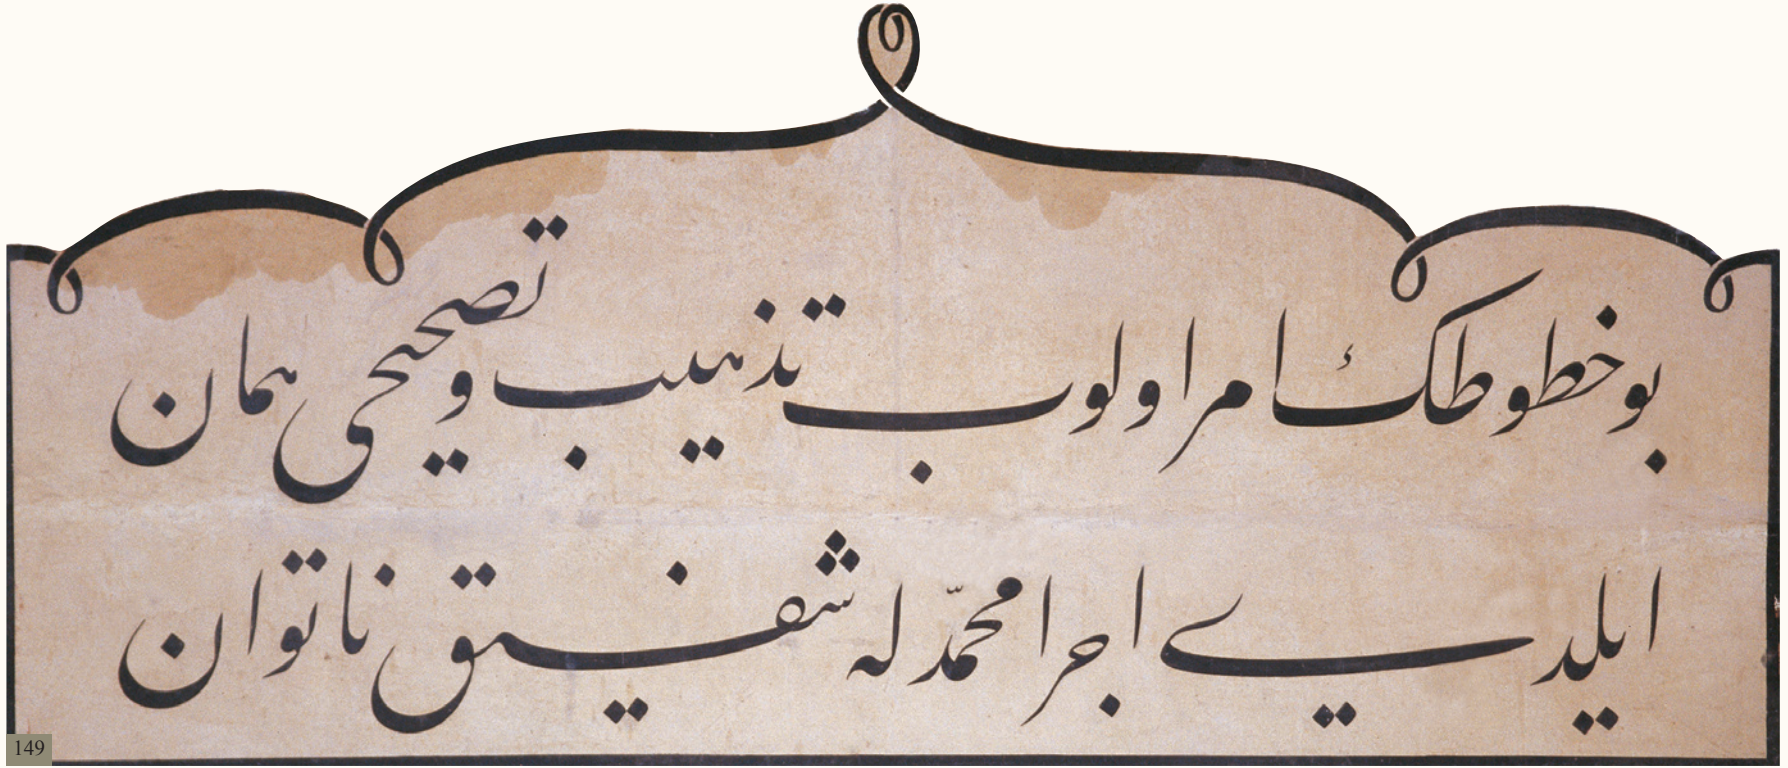 بو خطوطك امر اولوب تذهيب و تصحيحى همان
ايلدى اجرا محمّدله شفيق ناتوان
149